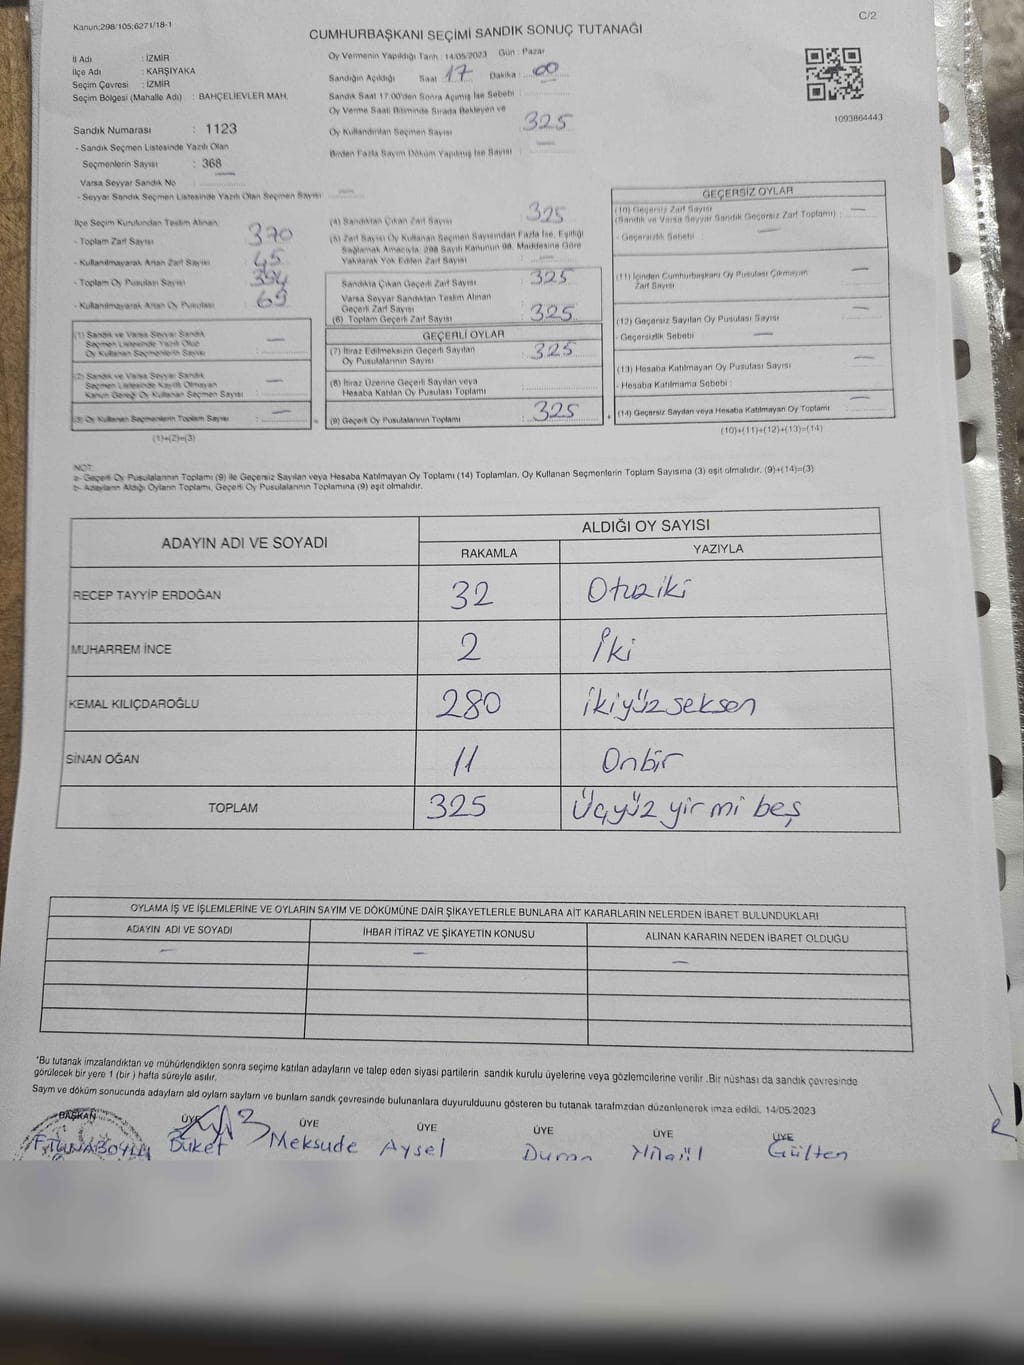 Kanun:298/105;6271/18-1
C/2
CUMHURBAŞKANI SEÇİMİ SANDIK SONUÇ TUTANAĞI
İl Adı : İZMİR
İlçe Adı : KARŞIYAKA
Seçim Çevresi : İZMİR
Seçim Bölgesi (Mahalle Adı) : BAHÇELİEVLER MAH.
Sandık Numarası : 1123
- Sandık Seçmen Listesinde Yazılı Olan
Seçmenlerin Sayısı : 368
Varsa Seyyar Sandık No :
- Seyyar Sandık Seçmen Listesinde Yazılı Olan Seçmen Sayısı
Oy Vermenin Yapıldığı Tarih : 14/05/2023 Gün : Pazar
Sandığın Açıldığı Saat 17 Dakika : 00
Sandık Saat 17:00'den Sonra Açımış İse Sebebi :
Oy Verme Saati Bitiminde Sırada Bekleyen ve
Oy Kullandırılan Seçmen Sayısı 325
Birden Fazla Sayım Döküm Yapılmış İse Sayısı —
1093864443
İlçe Seçim Kurulundan Teslim Alınan:
- Toplam Zarf Sayısı 370
- Kullanılmayarak Artan Zarf Sayısı 45
- Toplam Oy Pusulası Sayısı 394
- Kullanılmayarak Artan Oy Pusulası 69
(1) Sandık ve Varsa Seyyar Sandık
Seçmen Listesinde Yazılı Olup
Oy Kullanan Seçmenlerin Sayısı : —
(2) Sandık ve Varsa Seyyar Sandık
Seçmen Listesinde Kayıtlı Olmayan
Kanun Gereği Oy Kullanan Seçmen Sayısı : —
(3) Oy Kullanan Seçmenlerin Toplam Sayısı : —
(1)+(2)=(3)
(4) Sandıktan Çıkan Zarf Sayısı 325
(5) Zarf Sayısı Oy Kullanan Seçmen Sayısından Fazla İse, Eşitliği
Sağlamak Amacıyla, 298 Sayılı Kanunun 98. Maddesine Göre
Yakılarak Yok Edilen Zarf Sayısı : —
Sandıkta Çıkan Geçerli Zarf Sayısı 325
Varsa Seyyar Sandıktan Teslim Alınan
Geçerli Zarf Sayısı
(6) Toplam Geçerli Zarf Sayısı 325
GEÇERLİ OYLAR
(7) İtiraz Edilmeksizin Geçerli Sayılan
Oy Pusulalarının Sayısı 325
(8) İtiraz Üzerine Geçerli Sayılan veya
Hesaba Katılan Oy Pusulası Toplamı
(9) Geçerli Oy Pusulalarının Toplamı 325
GEÇERSİZ OYLAR
(10) Geçersiz Zarf Sayısı
(Sandık ve Varsa Seyyar Sandık Geçersiz Zarf Toplamı) : —
- Geçersizlik Sebebi : —
(11) İçinden Cumhurbaşkanı Oy Pusulası Çıkmayan
Zarf Sayısı —
(12) Geçersiz Sayılan Oy Pusulası Sayısı —
- Geçersizlik Sebebi —
(13) Hesaba Katılmayan Oy Pusulası Sayısı —
- Hesaba Katılmama Sebebi :
(14) Geçersiz Sayılan veya Hesaba Katılmayan Oy Toplamı —
(10)+(11)+(12)+(13)=(14)
NOT:
a- Geçerli Oy Pusulalarının Toplamı (9) ile Geçersiz Sayılan veya Hesaba Katılmayan Oy Toplamı (14) Toplamları, Oy Kullanan Seçmenlerin Toplam Sayısına (3) eşit olmalıdır. (9)+(14)=(3)
b- Adayların Aldığı Oyların Toplamı, Geçerli Oy Pusulalarının Toplamına (9) eşit olmalıdır.
ADAYIN ADI VE SOYADI
ALDIĞI OY SAYISI
RAKAMLA YAZIYLA
RECEP TAYYİP ERDOĞAN 32 Otuziki
MUHARREM İNCE 2 İki
KEMAL KILIÇDAROĞLU 280 ikiyüz seksen
SİNAN OĞAN 11 Onbir
TOPLAM 325 Üçyüz yirmi beş
OYLAMA İŞ VE İŞLEMLERİNE VE OYLARIN SAYIM VE DÖKÜMÜNE DAİR ŞİKAYETLERLE BUNLARA AİT KARARLARIN NELERDEN İBARET BULUNDUKLARI
ADAYIN ADI VE SOYADI İHBAR İTİRAZ VE ŞİKAYETİN KONUSU ALINAN KARARIN NEDEN İBARET OLDUĞU
— — —
*Bu tutanak imzalandıktan ve mühürlendikten sonra seçime katılan adayların ve talep eden siyasi partilerin sandık kurulu üyelerine veya gözlemcilerine verilir .Bir nüshası da sandık çevresinde
görülecek bir yere 1 (bir ) hafta süreyle asılır.
Sayım ve döküm sonucunda adayların ald oyların sayların ve bunların sandk çevresinde bulunanlara duyurulduunu gösteren bu tutanak tarafmzdan düzenlenerek imza edildi. 14/05/2023
BAŞKAN ÜYE ÜYE ÜYE ÜYE ÜYE ÜYE
Buket Meksude Aysel Duran Gülten